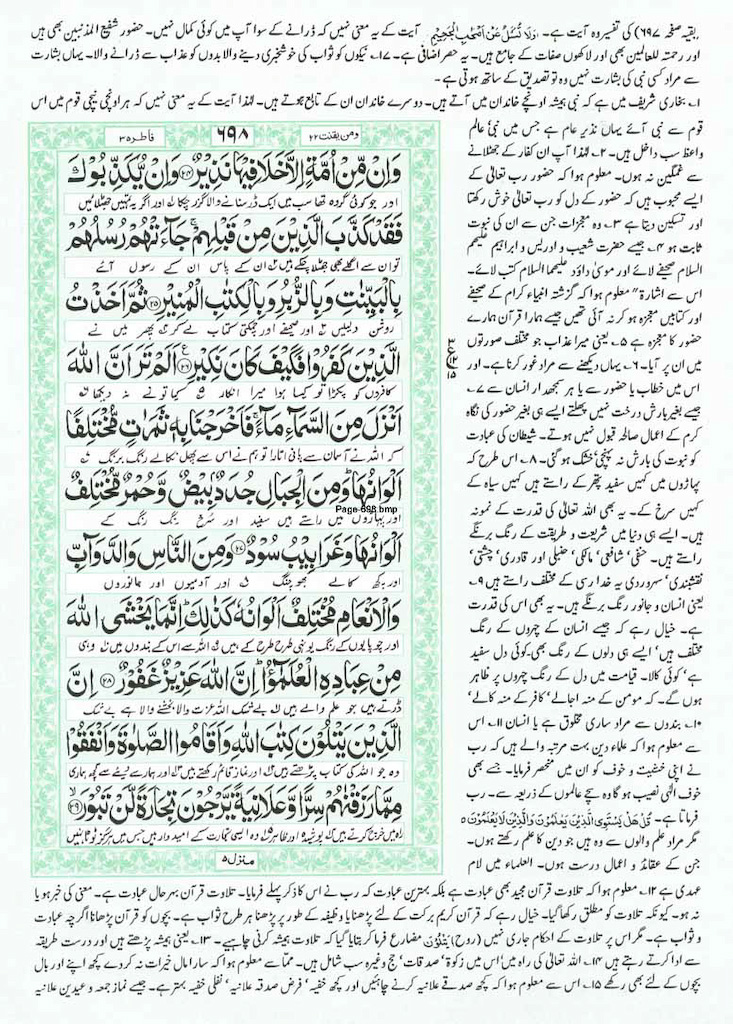 بقیہ صفحہ ۶۹۷) کی تفسیر وہ آیت ہے۔ وَلَا تُسْئَلُ عَنْ اَصْحٰبِ الْجَحِیْمِ آیت کے یہ معنی نہیں کہ ڈرانے کے سوا آپ میں کوئی کمال نہیں۔ حضور شفیع المذنبین بھی ہیں
اور رحمتہ للعالمین بھی اور لاکھوں صفات کے جامع ہیں۔ یہ حصر اضافی ہے۔ ۱۷؎ نیکوں کو ثواب کی خوشخبری دینے والا بدوں کو عذاب سے ڈرانے والا۔ یہاں بشارت
سے مراد کسی نبی کی بشارت نہیں وہ تو تصدیق کے ساتھ ہوتی ہے۔
۱؎ بخاری شریف میں ہے کہ نبی ہمیشہ اونچے خاندان میں آتے ہیں۔ دوسرے خاندان ان کے تابع ہوتے ہیں۔ لہٰذا آیت کے یہ معنی نہیں کہ ہر اونچی نیچی قوم میں اس
قوم سے نبی آئے یہاں نذیر عام ہے جس میں نبی عالم
واعظ سب داخل ہیں۔ ۲؎ لہٰذا آپ ان کفار کے جھٹلانے
سے غمگین نہ ہوں۔ معلوم ہوا کہ حضور رب تعالیٰ کے
ایسے محبوب ہیں کہ حضور کے دل کو رب تعالیٰ خوش رکھتا
اور تسکین دیتا ہے ۳؎ وہ معجزات جن سے ان کی نبوت
ثابت ہو ۴؎ جیسے حضرت شعیب و ادریس و ابراہیم علیہم
السلام صحیفے لائے اور موسیٰ داؤد علیہما السلام کتب لائے۔
اس سے اشارۃ" معلوم ہوا کہ گزشتہ انبیاء کرام کے صحیفے
اور کتابیں معجزہ ہو کر نہ آئی تھیں جیسے ہمارا قرآن ہمارے
حضور کا معجزہ ہے ۵؎ یعنی میرا عذاب جو مختلف صورتوں
میں ان پر آیا۔ ۶؎ یہاں دیکھنے سے مراد غور کرنا ہے۔ اور
اس میں خطاب یا حضور سے یا ہر سمجھدار انسان سے ۷؎
جیسے بغیر بارش درخت نہیں پھلتے ایسے ہی بغیر حضور کی نگاہ
کرم کے اعمال صالحہ قبول نہیں ہوتے۔ شیطان کی عبادت
کو نبوت کی بارش نہ پہنچی، خشک ہو گئی۔ ۸؎ اس طرح کہ
پہاڑوں میں کہیں سفید پتھر کے راستے ہیں کہیں سیاہ کے
کہیں سرخ کے۔ یہ بھی اللہ تعالیٰ کی قدرت کے نمونہ
ہیں۔ ایسے ہی دنیا میں شریعت و طریقت کے رنگ برنگے
راستے ہیں۔ حنفی، شافعی، مالکی، حنبلی اور قادری، چشتی،
نقشبندی، سہروردی یہ خدا رسی کے مختلف راستے ہیں ۹؎
یعنی انسان و جانور رنگ برنگے ہیں۔ یہ بھی اس کی قدرت
ہے۔ خیال رہے کہ جیسے انسان کے چہروں کے رنگ
مختلف ہیں، ایسے ہی دلوں کے رنگ بھی۔ کوئی دل سفید
ہے، کوئی کالا۔ قیامت میں دل کے رنگ چہروں پر ظاہر
ہوں گے۔ کہ مومن کے منہ اجالے، کافر کے منہ کالے،
۱۰؎ بندوں سے مراد ساری مخلوق ہے یا انسان ۱۱؎ اس
سے معلوم ہوا کہ علماء دین بہت مرتبہ والے ہیں کہ رب
نے اپنی خشیت و خوف کو ان میں منحصر فرمایا۔ جسے بھی
خوف الٰہی نصیب ہو گا وہ سچے عالموں کے ذریعہ سے۔ رب
فرماتا ہے۔ قُلْ هَلْ یَسْتَوِی الَّذِیْنَ یَعْلَمُوْنَ وَالَّذِیْنَ لَا یَعْلَمُوْنَ ہ
مگر مراد علم والوں سے وہ ہیں جو دین کا علم رکھتے ہوں۔
جن کے عقائد و اعمال درست ہوں۔ العلماء میں لام
ومن یقنت ۲۲ ۶۹۸ فاطر ۳۵
وَاِنْ مِّنْ اُمَّةٍ اِلَّا خَلَا فِیْهَا نَذِیْرٌ ۝۲۴ وَاِنْ یُّكَذِّبُوْكَ
اور جو کوئی گروہ تھا سب میں ایک ڈر سنانے والا گزر چکا اور اگر یہ تمہیں جھٹلائیں
فَقَدْ كَذَّبَ الَّذِیْنَ مِنْ قَبْلِهِمْ ۚ جَآءَتْهُمْ رُسُلُهُمْ
تو ان سے اگلے بھی جھٹلا چکے ہیں ان کے پاس ان کے رسول آئے
بِالْبَیِّنٰتِ وَبِالزُّبُرِ وَبِالْكِتٰبِ الْمُنِیْرِ ۝۲۵ ثُمَّ اَخَذْتُ
روشن دلیلیں اور صحیفے اور چمکتی کتاب لے کر پھر میں نے
الَّذِیْنَ كَفَرُوْا فَكَیْفَ كَانَ نَكِیْرِ ۝۲۶ اَلَمْ تَرَ اَنَّ اللّٰهَ
کافروں کو پکڑا تو کیسا ہوا میرا انکار کیا تو نے نہ دیکھا
اَنْزَلَ مِنَ السَّمَآءِ مَآءً ۚ فَاَخْرَجْنَا بِهٖ ثَمَرٰتٍ مُّخْتَلِفًا
کہ اللہ نے آسمان سے پانی اتارا تو ہم نے اس سے پھل نکالے رنگ برنگ
اَلْوَانُهَا ؕ وَمِنَ الْجِبَالِ جُدَدٌۢ بِیْضٌ وَّحُمْرٌ مُّخْتَلِفٌ
اور پہاڑوں میں راستے ہیں سفید اور سرخ رنگ رنگ کے
Page-698.bmp
اَلْوَانُهَا وَغَرَابِیْبُ سُوْدٌ ۝۲۷ وَمِنَ النَّاسِ وَالدَّوَآبِّ
اور کچھ کالے بھوچنگ اور آدمیوں اور جانوروں
وَالْاَنْعَامِ مُخْتَلِفٌ اَلْوَانُهٗ كَذٰلِكَ ؕ اِنَّمَا یَخْشَی اللّٰهَ
اور چوپایوں کے رنگ یونہی طرح طرح کے ہیں اللہ سے اس کے بندوں میں وہی
مِنْ عِبَادِهِ الْعُلَمٰٓؤُا ؕ اِنَّ اللّٰهَ عَزِیْزٌ غَفُوْرٌ ۝۲۸ اِنَّ
ڈرتے ہیں جو علم والے ہیں بے شک اللہ عزت والا بخشنے والا ہے بے شک
الَّذِیْنَ یَتْلُوْنَ كِتٰبَ اللّٰهِ وَاَقَامُوا الصَّلٰوةَ وَاَنْفَقُوْا
وہ جو اللہ کی کتاب پڑھتے ہیں اور نماز قائم رکھتے ہیں اور ہمارے دیئے سے کچھ ہماری
مِمَّا رَزَقْنٰهُمْ سِرًّا وَّعَلَانِیَةً یَّرْجُوْنَ تِجَارَةً لَّنْ تَبُوْرَ ۝۲۹
راہ میں خرچ کرتے ہیں پوشیدہ اور ظاہر وہ ایسی تجارت کے امیدوار ہیں جس میں ہرگز ٹوٹا نہیں
منزل ۵
عہدی ہے ۱۲؎ معلوم ہوا کہ تلاوت قرآن مجید بھی عبادت ہے بلکہ بہترین عبادت کہ رب نے اس کا ذکر پہلے فرمایا۔ تلاوت قرآن بہر حال عبادت ہے۔ معنی کی خبر ہو یا
نہ ہو۔ کیونکہ تلاوت کو مطلق رکھا گیا۔ خیال رہے کہ قرآن کریم برکت کے لئے پڑھنا یا وظیفہ کے طور پر پڑھنا ہر طرح ثواب ہے۔ بچوں کو قرآن پڑھانا اگرچہ عبادت
و ثواب ہے۔ مگر اس پر تلاوت کے احکام جاری نہیں (روح) یَتْلُوْنَ مضارع فرما کر بتایا گیا کہ تلاوت ہمیشہ کرنی چاہیے۔ ۱۳؎ یعنی ہمیشہ پڑھتے ہیں اور درست طریقہ
سے ادا کرتے رہتے ہیں ۱۴؎ اللہ تعالیٰ کی راہ میں، اس میں زکوٰۃ، صدقات، حج وغیرہ سب شامل ہیں۔ مما سے معلوم ہوا کہ سارا مال خیرات نہ کر دے کچھ اپنے اور بال
بچوں کے لئے بھی رکھے ۱۵؎ اس سے معلوم ہوا کہ کچھ صدقے علانیہ کرنے چاہئیں اور کچھ خفیہ، فرض صدقہ علانیہ، نفلی خفیہ بہتر ہے۔ جیسے نماز جمعہ و عیدین علانیہ